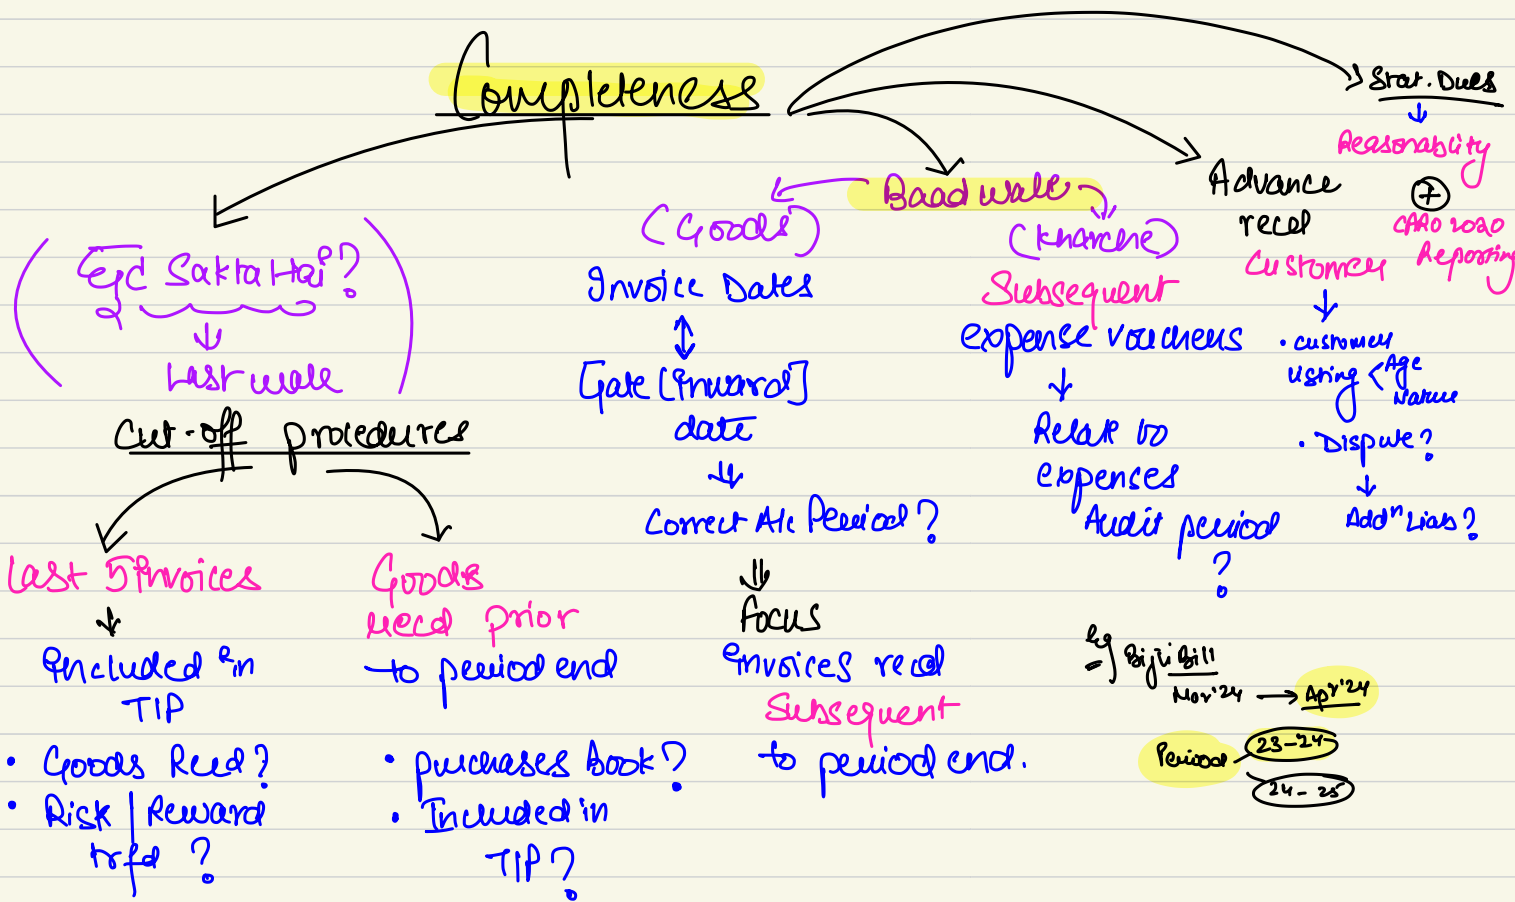 Completeness
Egd Sakta Hai?
Last wale
Cut-off procedures
Last 5 Invoices
Included in
TIP
• Goods Recd?
• Risk | Reward
trfd ?
Goods
recd prior
to period end
• purchases Book?
• Included in
TIP?
Baad wale
(Goods)
Invoice Dates
Gate [Inward]
date
Correct A/c Period?
Focus
Invoices recd
Subsequent
to period end.
(Kharche)
Subsequent
expense vouchers
Relate to
expenses
Audit period
?
Eg Bijli Bill
Mar'24 → Apr'24
Period 23-24
24-25
Advance
recd
Customer
• customer
listing < Age
Nature
• Dispute?
Addn Liab?
Stat. Dues
Reasonability
+
CARO 2020
Reporting